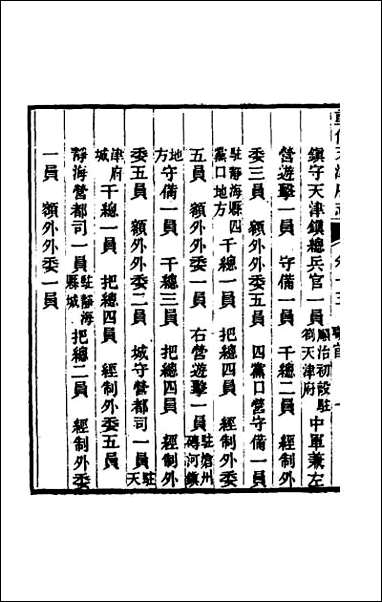 鎮守天津鎮總兵官一員順治初設駐劄天津府中軍兼左
營遊擊一員　守備一員　千總二員　經制外
委三員　額外外委五員　四黨口營守備一員
駐靜海縣四黨口地方千總一員　把總四員　經制外委
五員　額外外委一員　右營遊擊一員駐滄州磚河鎮
地方守備一員　千總三員　把總四員　經制外
委五員　額外外委二員　城守營都司一員駐天
津府城千總一員　把總四員　經制外委五員
靜海營都司一員駐靜海縣城把總二員　經制外委
一員　額外外委一員